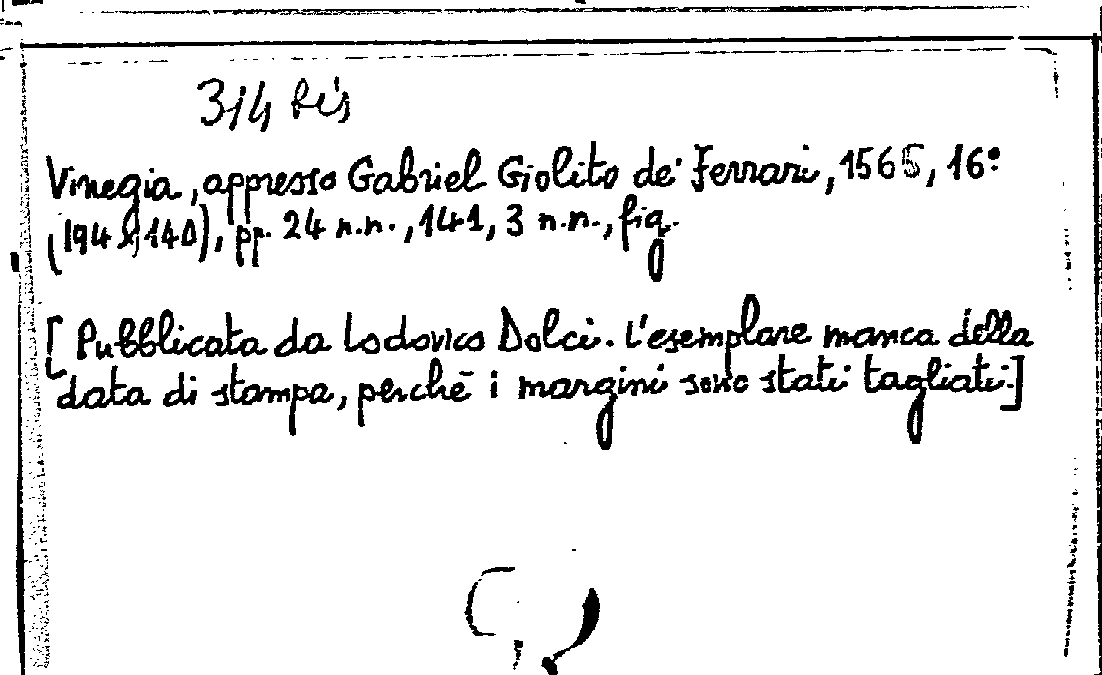 314 bis
Vinegia, appresso Gabriel Giolito de' Ferrari, 1565, 16°
(194 x 140), pp. 24 n.n., 141, 3 n.n., fig.
[Pubblicata da Lodovico Dolci. L'esemplare manca della
data di stampa, perchè i margini sono stati tagliati.]